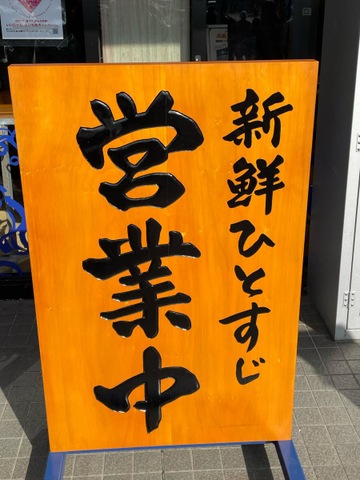 新鮮ひとすじ
営業中